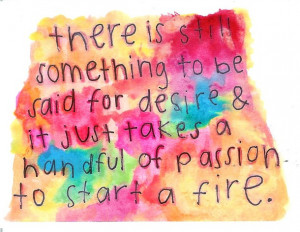 there is still
something to be
said for desire &
it just takes a
handful of passion
to start a fire.